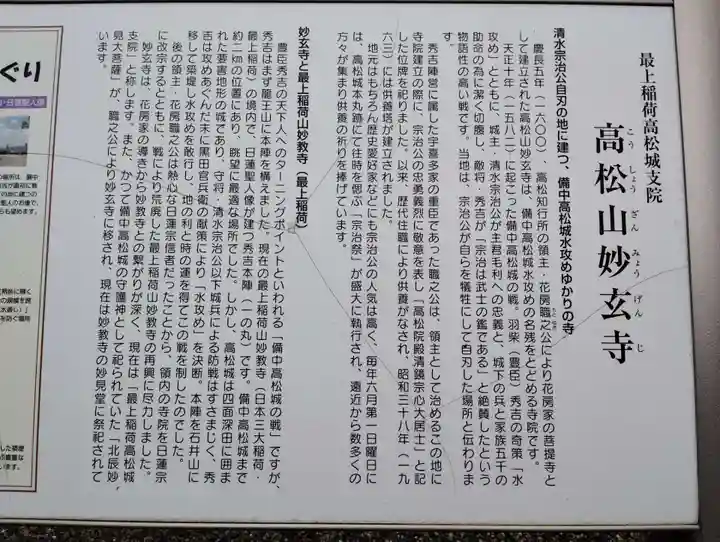 最上稲荷高松城支院
高松山妙玄寺
こうしょうざんみょうげんじ
清水宗治公自刃の地に建つ、備中高松城水攻めゆかりの寺
慶長五年（一六〇〇）、高松知行所の領主・花房職之公により花房家の菩提寺と
して建立された高松山妙玄寺は、備中高松城水攻めの名残をとどめる寺院です。
天正十年（一五八二）に起こった備中高松城の戦。羽柴（豊臣）秀吉の奇策「水
攻め」とともに、城主、清水宗治公が主君毛利への忠義と、城下の兵と家族五千の
助命の為に潔く切腹し、敵将・秀吉が「宗治は武士の鑑である」と絶賛したという
物語性の高い戦です。当地は、宗治公が自らを犠牲にして自刃した場所と伝わりま
す。
秀吉陣営に属した宇喜多家の重臣であった職之公は、領主として治めるこの地に
寺院建立の際に、宗治公の忠勇義烈に敬意を表し「高松院殿清鏡宗心大居士」と記
した位牌を祀りました。以来、歴代住職により供養がなされ、昭和三十八年（一九
六三）には供養塔が建立されました。
地元はもちろん歴史愛好家などにも宗治公の人気は高く、毎年六月第一日曜日に
は、高松城本丸跡にて往時を偲ぶ「宗治祭」が盛大に執行され、遠近から数多くの
方々が集まり供養の祈りを捧げています。
妙玄寺と最上稲荷山妙教寺（最上稲荷）
豊臣秀吉の天下人へのターニングポイントといわれる「備中高松城の戦」ですが、
秀吉はまず龍王山に本陣を構えました。現在の最上稲荷山妙教寺（日本三大稲荷・
最上稲荷）の境内で、日蓮聖人像が建つ秀吉本陣（一の丸）です。備中高松城まで
約二㎞の位置にあり、眺望に最適な場所でした。しかし、高松城は四面深田に囲ま
れた要害地形の城であり、守将・清水宗治公以下城兵による防戦はすさまじく、秀
吉は攻めあぐんだ末に黒田官兵衛の献策により「水攻め」を決断。本陣を石井山に
移して築堤し水攻めを敢行し、地の利と時の運を得てこの戦を制したのでした。
後の領主・花房職之公は熱心な日蓮宗信者だったことから、領内の寺院を日蓮宗
に改宗するとともに、戦により荒廃した最上稲荷山妙教寺の再興に尽力しました。
妙玄寺は、花房家の導きから妙教寺との繋がりが深く、現在は「最上稲荷高松城
支院」と称します。また、かつて備中高松城の守護神として祀られていた「北辰妙
見大菩薩」が、職之公により妙玄寺に移され、現在は妙教寺の妙見堂に祭祀されて
います。
ぐり